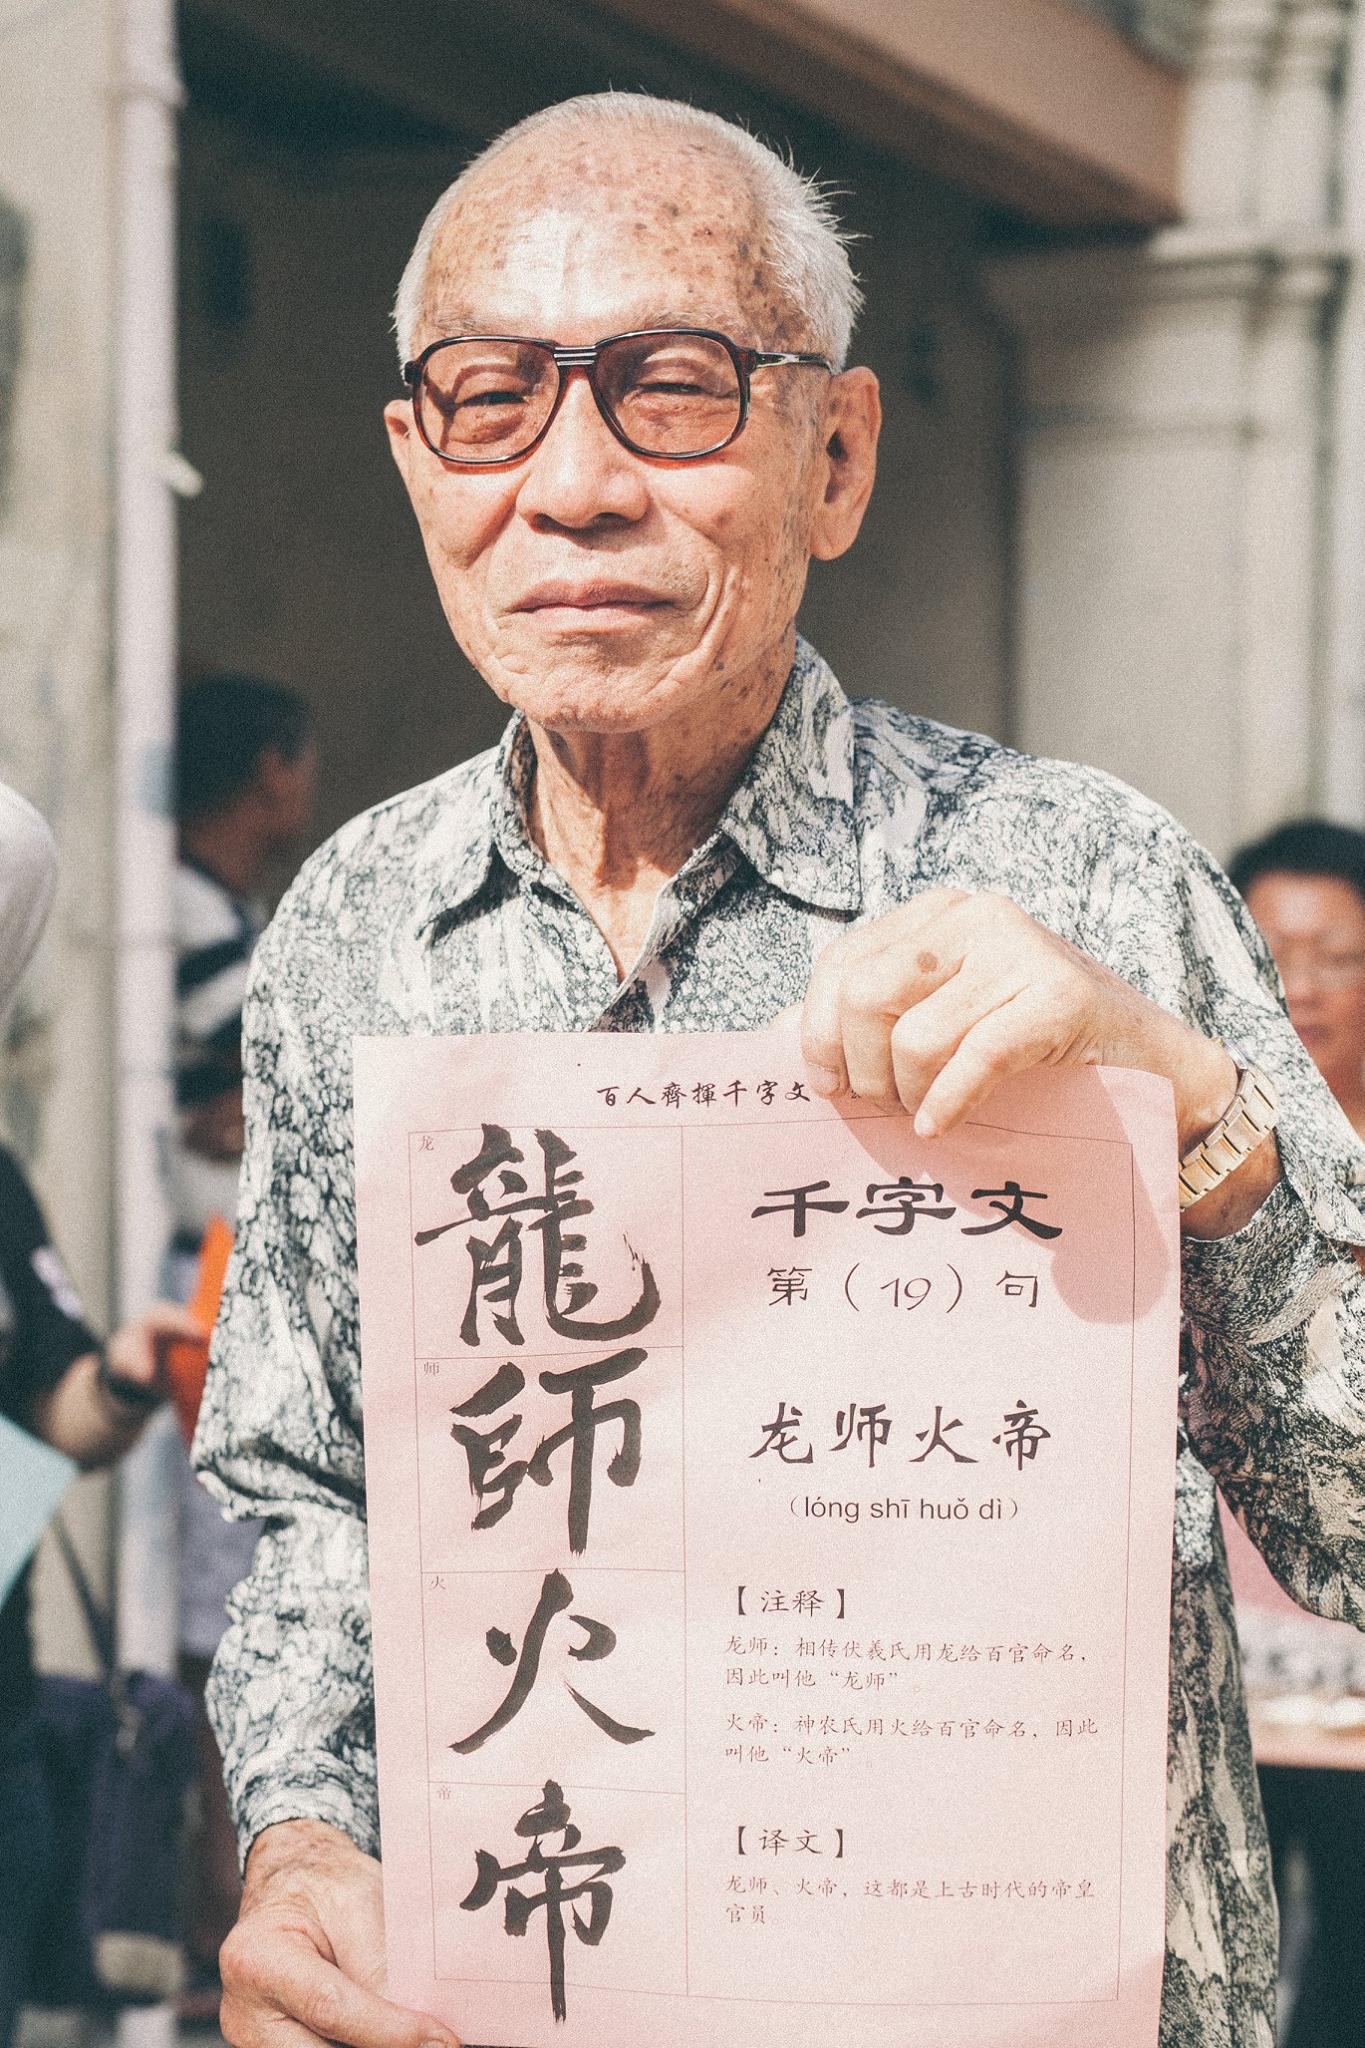 百人齊揮千字文
龙
龍
师
師
火
火
帝
帝
千字文
第（19）句
龙师火帝
（lóng shī huǒ dì）
【注释】
龙师：相传伏羲氏用龙给百官命名，
因此叫他“龙师”。
火帝：神农氏用火给百官命名，因此
叫他“火帝”。
【译文】
龙师、火帝，这都是上古时代的帝皇
官员。